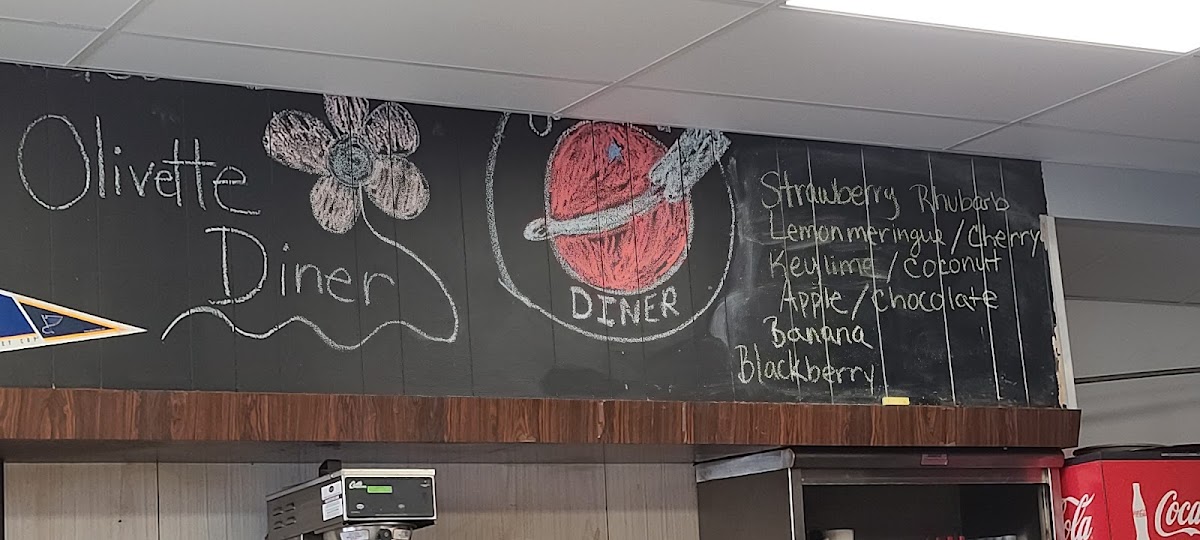 Olivette
Diner
DINER
Strawberry Rhubarb
Lemonmeringue / Cherry
Keylime / Coconut
Apple / Chocolate
Banana
Blackberry
Coca